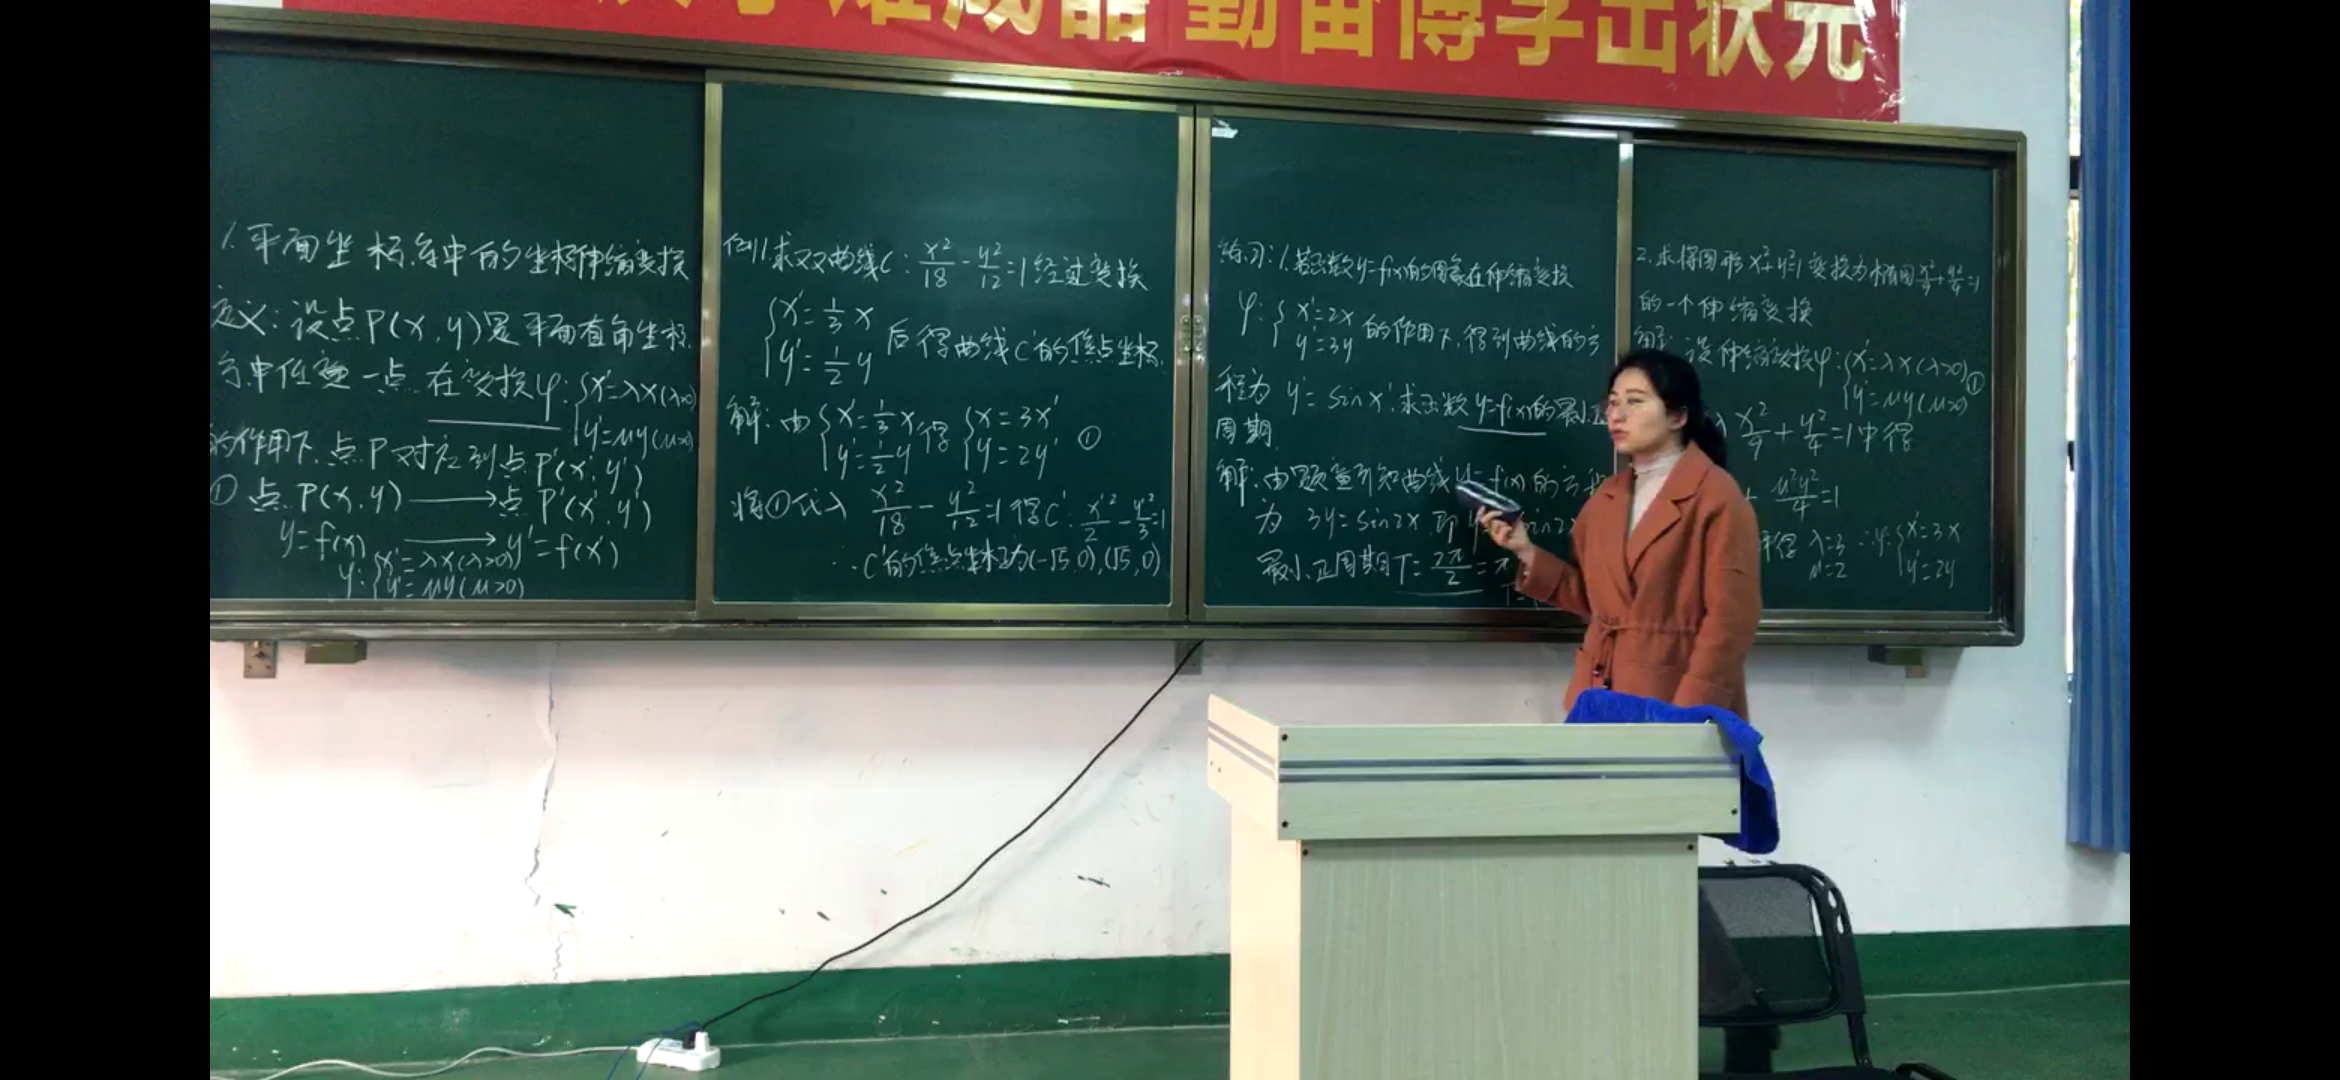 成器 勤奋博学出状元
1.平面坐标系中的坐标伸缩变换
定义:设点P(x,y)是平面直角坐标
系中任意一点.在变换φ:{x'=λx(λ>0)
y'=μy(μ>0)
的作用下.点P对应到点P'(x',y')
① 点P(x,y)→点P'(x',y')
y=f(x)→y'=f(x')
φ:{x'=λx(λ>0)
y'=μy(μ>0)
例1.求双曲线C:x²/18-y²/12=1经过变换
{x'=1/3x
y'=1/2y 后得曲线C'的焦点坐标.
解:由{x'=1/3x
y'=1/2y 得{x=3x'
y=2y' ①
将①代入 x²/18-y²/12=1得C':x'²/2-y'²/3=1
∴C'的焦点坐标为(-√5,0),(√5,0)
练习:1.若函数y=f(x)的图象在伸缩变换
φ:{x'=2x
y'=3y 的作用下.得到曲线的方
程为 y'=sinx'.求函数y=f(x)的最小正
周期.
解:由题意可知曲线y=f(x)的方程
为 3y=sin2x.即
最小正周期T=2π/2=π
2.求将图形x²+y²=1变换为椭圆x²/9+y²/4=1
的一个伸缩变换
解:设伸缩变换φ:{x'=λx(λ>0)
y'=μy(μ>0) ①
入 x²/9+y²/4=1中得
+μ²y²/4=1
得 λ=3
μ=2
∴φ:{x'=3x
y'=2y